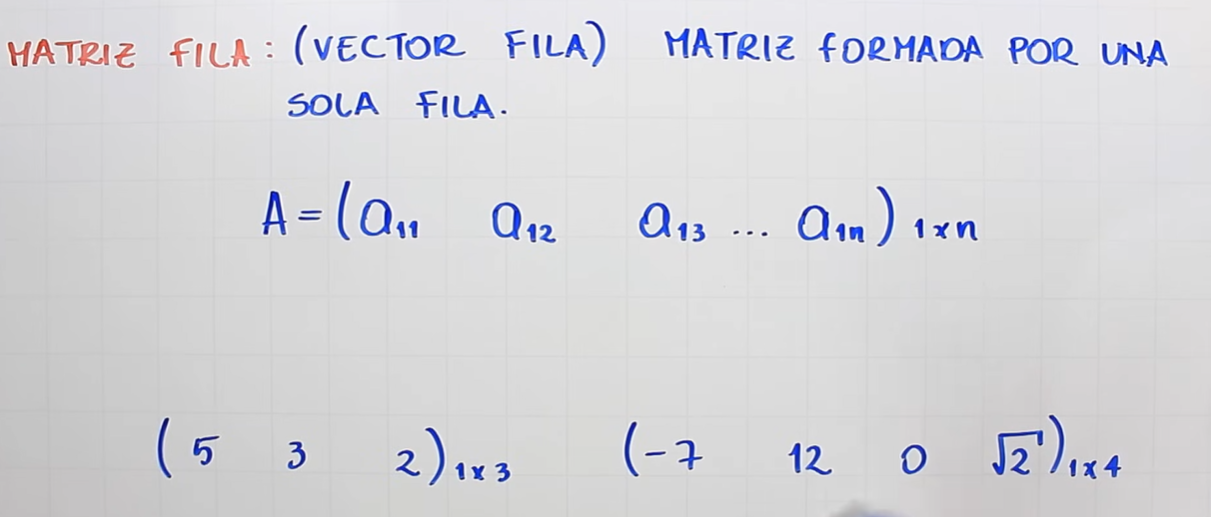 MATRIZ FILA: (VECTOR FILA) MATRIZ FORMADA POR UNA
SOLA FILA.
A = (a₁₁ a₁₂ a₁₃ ... a₁ₙ)₁ₓₙ
(5 3 2)₁ₓ₃ (-7 12 0 √2)₁ₓ₄